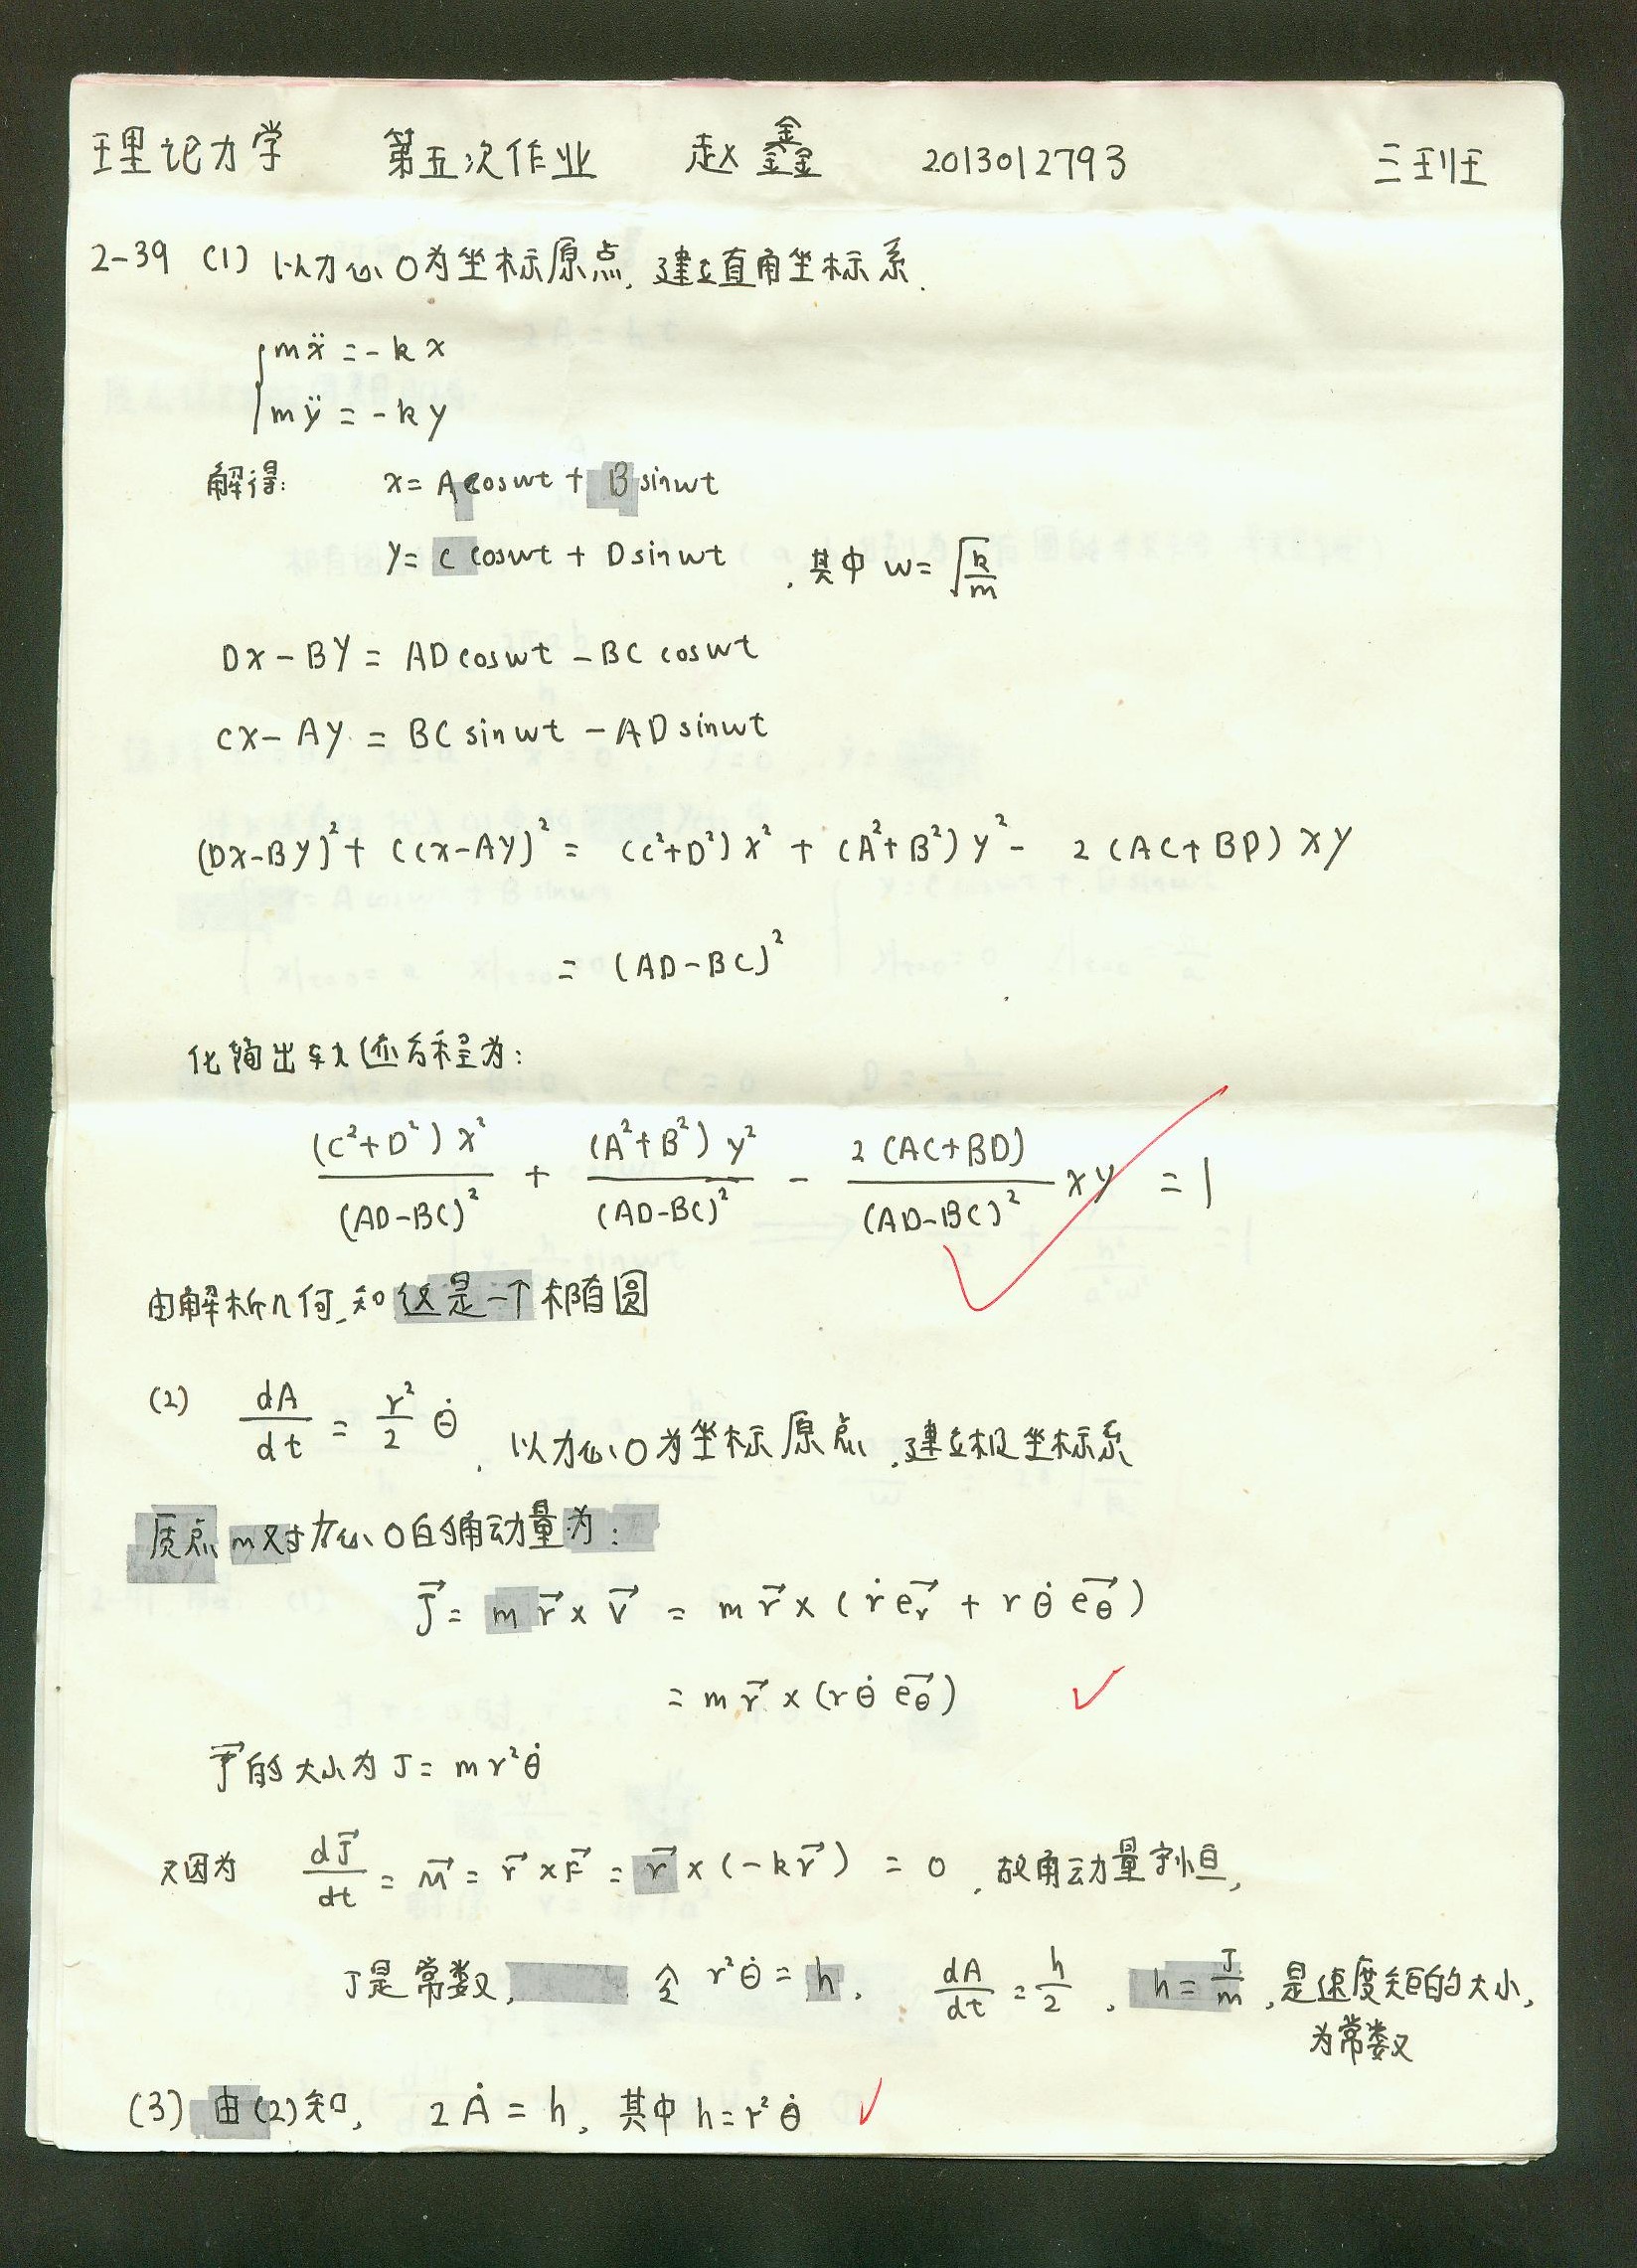 理论力学 第五次作业 赵鑫 2013012793 三班
2-39 (1) 以力心O为坐标原点, 建立直角坐标系.
mẍ = -kx
mÿ = -ky
解得: x = A cosωt + B sinωt
y = C cosωt + D sinωt , 其中 ω = √(k/m)
Dx - By = AD cosωt - BC cosωt
Cx - Ay = BC sinωt - AD sinωt
(Dx-By)² + (Cx-Ay)² = (C²+D²)x² + (A²+B²)y² - 2(AC+BD)xy
= (AD-BC)²
化简出轨迹方程为:
(C²+D²)x²/(AD-BC)² + (A²+B²)y²/(AD-BC)² - 2(AC+BD)/(AD-BC)² xy = 1
由解析几何,知这是一个椭圆
(2) dA/dt = r²/2 θ̇ , 以力心O为坐标原点,建立极坐标系
质点m对力心O的角动量为:
J⃗ = m r⃗ × v⃗ = m r⃗ × (ṙ e⃗r + r θ̇ e⃗θ)
= m r⃗ × (r θ̇ e⃗θ)
J⃗的大小为 J = m r² θ̇
又因为 dJ⃗/dt = M⃗ = r⃗ × F⃗ = r⃗ × (-k r⃗) = 0 , 故角动量守恒,
J是常数, 令 r²θ̇ = h, dA/dt = h/2 , h = J/m ,是速度矩的大小,
为常数
(3) 由(2)知, 2Ȧ = h, 其中 h = r²θ̇